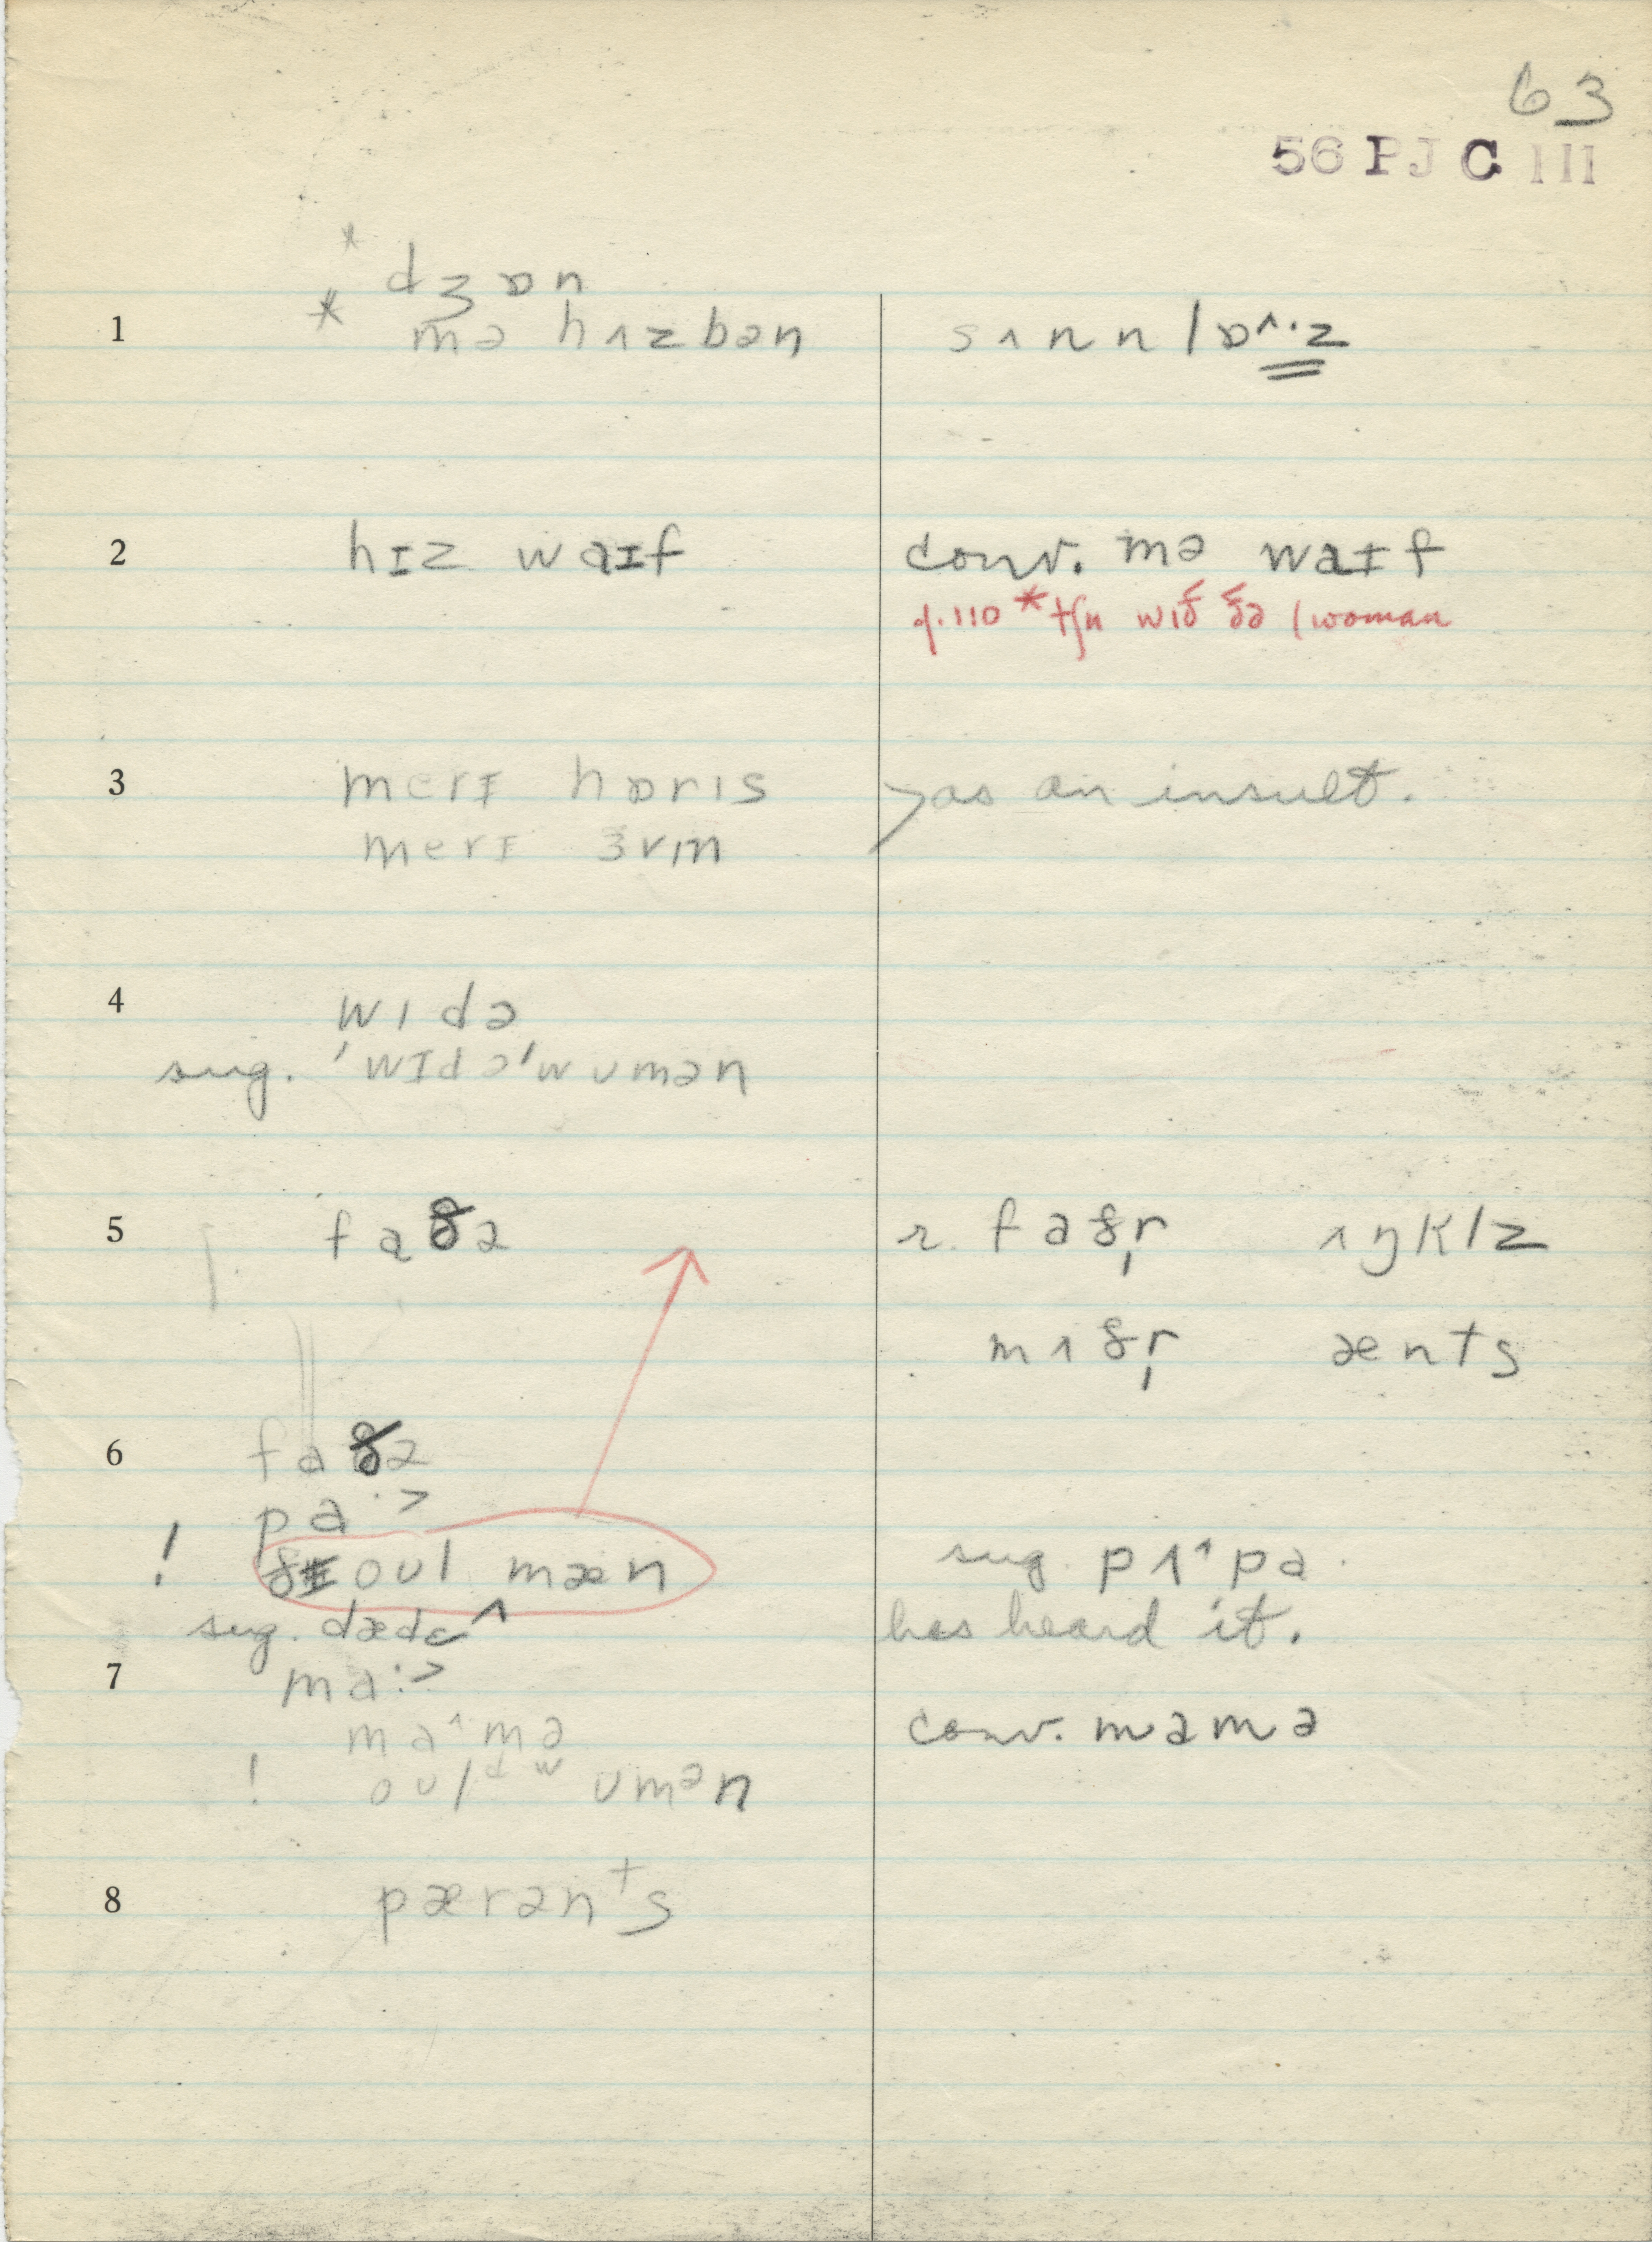 63
56 PJ C III
* dʒɒn
1 * mə hʌzbən sʌnnlɒ^·z
2 hɪz waɪf conv. mə waɪf
p.110 * tʃu wɪð ðə / woman
3 merɪ hɒrɪs > as an insult.
merɪ ɜvɪn
4 wɪdə
sug. 'wɪdə'wumən
5 faðə r. faðr̩ ʌŋklz
mʌðr̩ ænts
6 faðə
pa·>
! oul mæn sug. pʌ^pə
sug. dædɛ^ has heard it.
7 ma:>
ma^mə conv. mamə
! oulᵈʷumən
8 pærənts